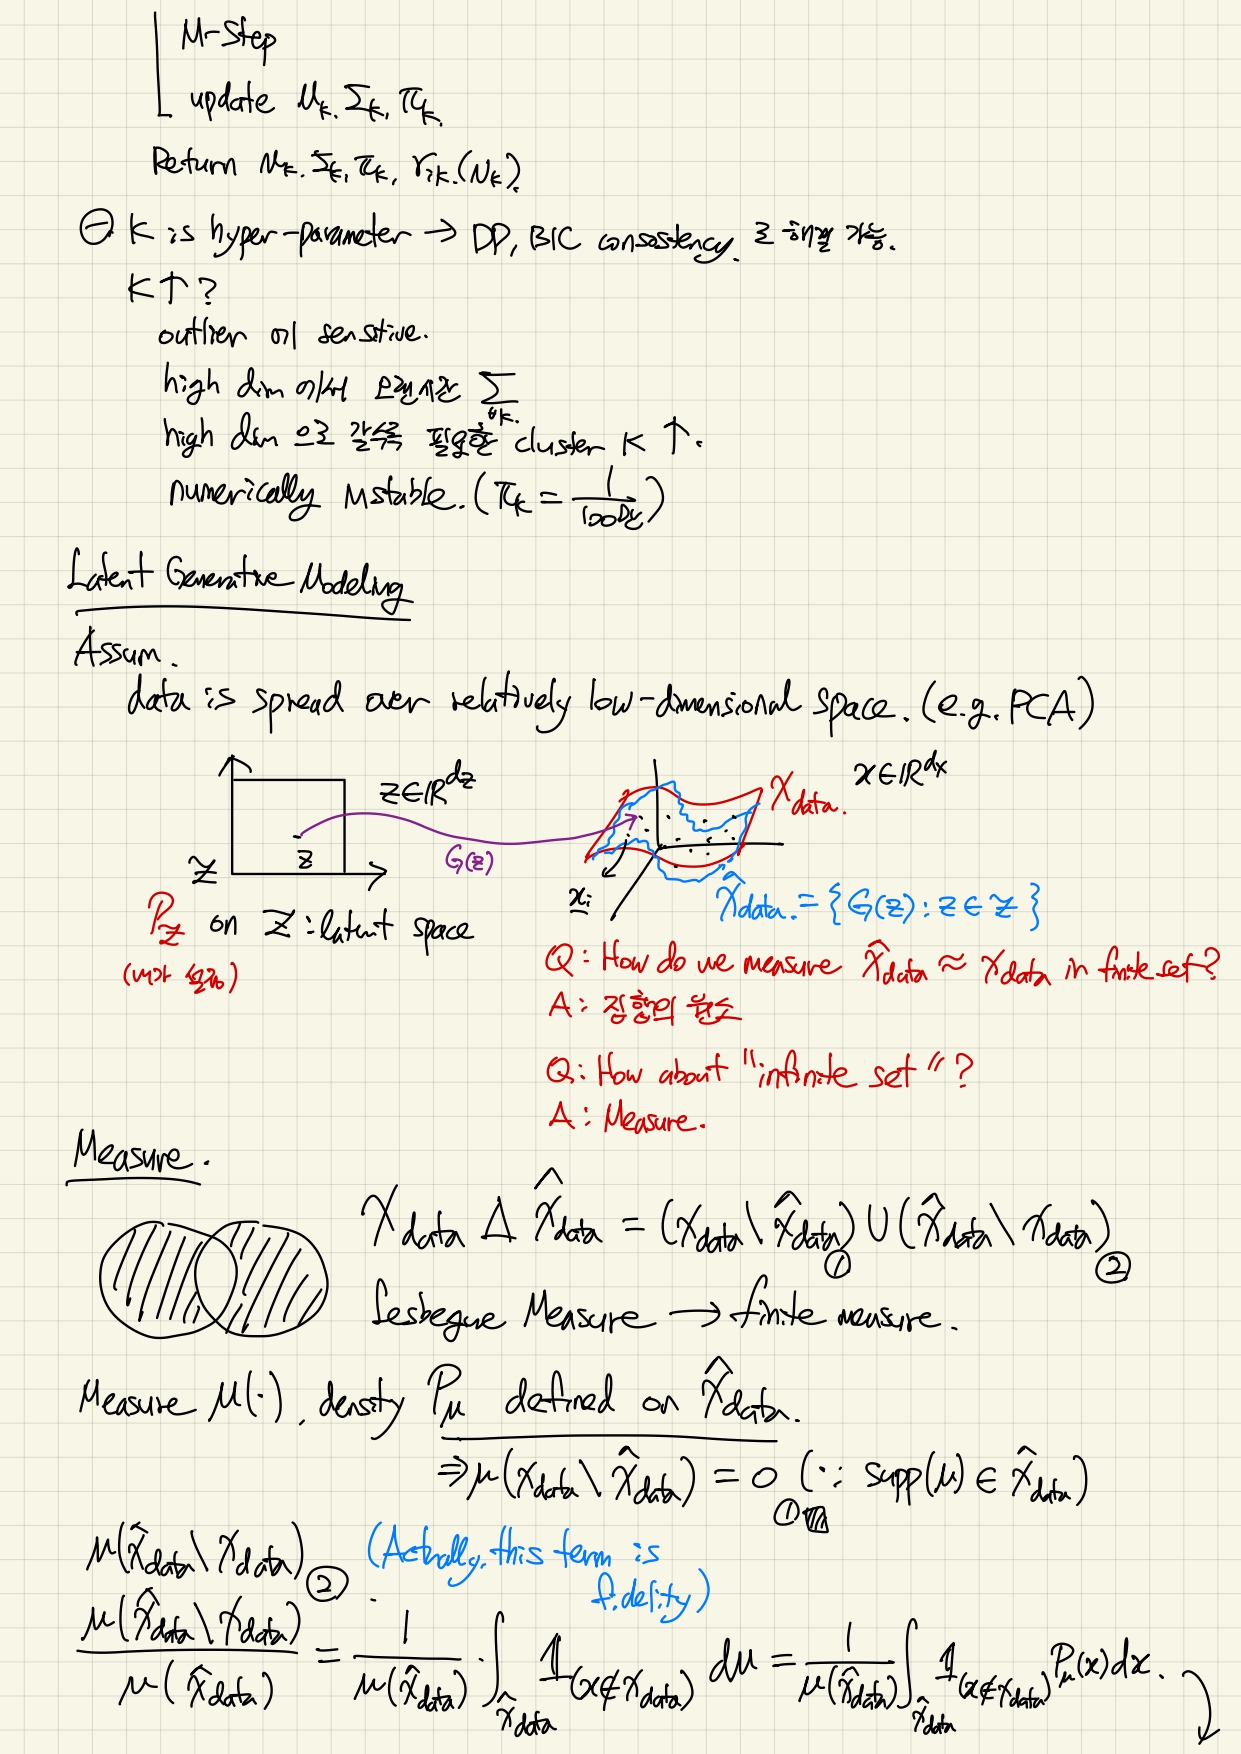 M-Step
update μk, Σk, πk.
Return μk, Σk, πk, rik.(Nk).
⊖ K is hyper-parameter → DP, BIC consostency. 로 해결 가능.
K↑?
outlier 에 sensitive.
high dim 에서 오랜시간 Σ∀k.
high dim 으로 갈수록 필요한 cluster K ↑.
numerically unstable. (πk = 1/100)
Latent Generative Modeling
Assum.
data is spread over relatively low-dimensional space. (e.g. PCA)
z∈ℝ^dz
x∈ℝ^dx
𝒳data.
z
G(z)
𝒵
xi
𝒳̂data. = {G(z) : z ∈ 𝒵}
P𝒵 on 𝒵 : latent space
(내가 설정)
Q: How do we measure 𝒳̂data ≈ 𝒳data in finite set?
A: 집합의 원소
Q: How about "infinite set"?
A: Measure.
Measure.
𝒳data Δ 𝒳̂data = (𝒳data \ 𝒳̂data)① ∪ (𝒳̂data \ 𝒳data)②
Lesbegue Measure → finite measure.
Measure μ(·), density Pμ defined on 𝒳̂data.
⇒ μ(𝒳data \ 𝒳̂data) = 0 (∵ supp(μ) ∈ 𝒳̂data)
①
μ(𝒳̂data \ 𝒳data) ② (Actually, this term is
fidelity)
μ(𝒳̂data \ 𝒳data) / μ(𝒳̂data) = 1/μ(𝒳̂data) · ∫𝒳̂data 𝟙(x∉𝒳data) dμ = 1/μ(𝒳̂data) ∫𝒳̂data 𝟙(x∉𝒳data) Pμ(x)dx.